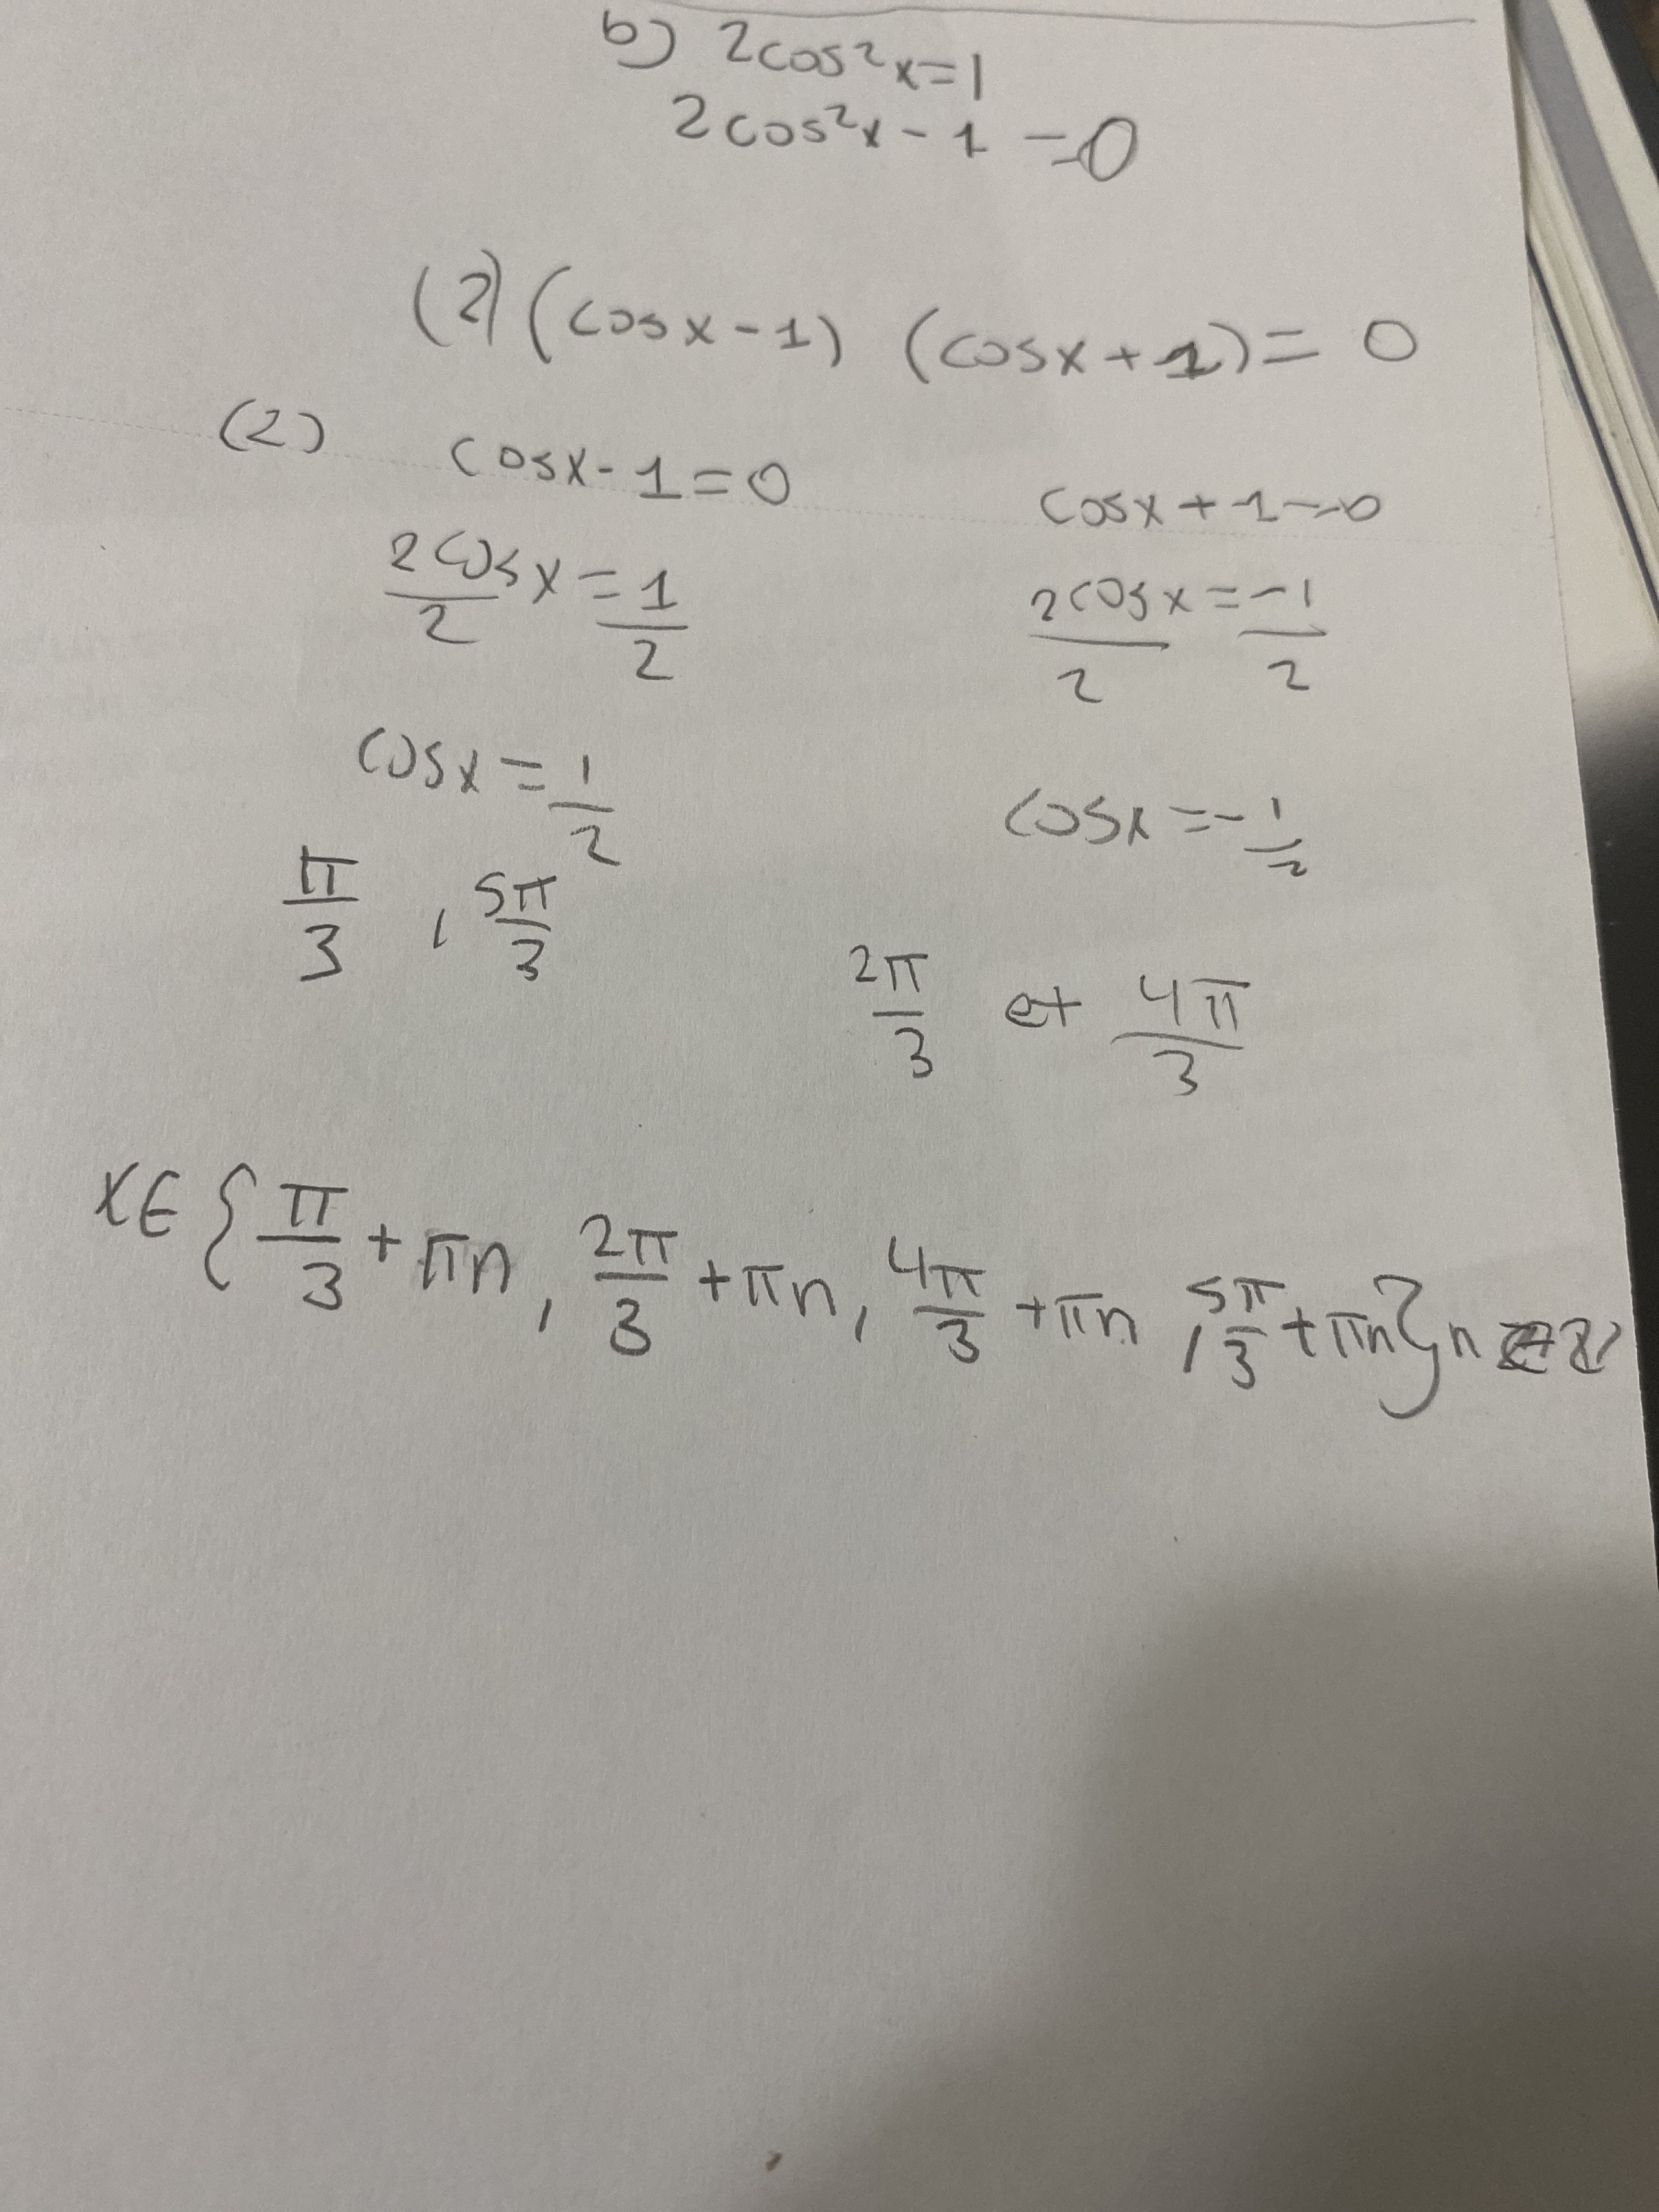 b) 2cos²x=1
2cos²x - 1 = 0
(2)(cosx-1) (cosx+1)= 0
(2) cosx-1=0 cosx+1=0
2cosx/2 = 1/2 2cosx/2 = -1/2
cosx = 1/2 cosx = -1/2
π/3 , 5π/3 2π/3 et 4π/3
x∈ {π/3 + πn, 2π/3 + πn, 4π/3 + πn, 5π/3 + πn} n